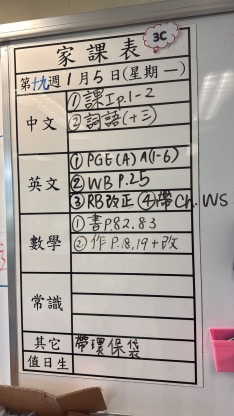 家課表
3C
第十九週 1月5日(星期一)
中文
①課工p.1-2
②詞語(十三)
英文
①PGE(A) A(1-6)
②WB P.25
③RB改正 ④帶Ch. WS
數學
①書P82.83
②作P.18,19+改
常識
其它
帶環保袋
值日生